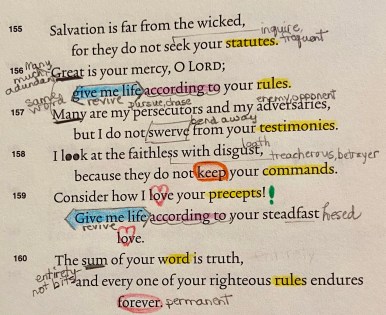 inquire,
frequent
155 Salvation is far from the wicked,
for they do not seek your statutes.
Many
much
abundant
156 Great is your mercy, O LORD;
give me life according to your rules.
same
word
revive
pursue, chase
enemy, opponent
157 Many are my persecutors and my adversaries,
bend away
but I do not swerve from your testimonies.
158 I look at the faithless with disgust,
loath
treacherous, betrayer
because they do not keep your commands.
159 Consider how I love your precepts!
Give me life according to your steadfast hesed
revive
love.
160 The sum of your word is truth,
entirety
not bits
and every one of your righteous rules endures
forever. permanent